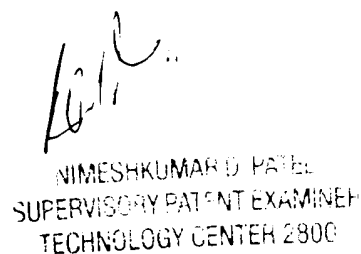 NIMESHKUMAR D. PATEL
SUPERVISORY PATENT EXAMINER
TECHNOLOGY CENTER 2800